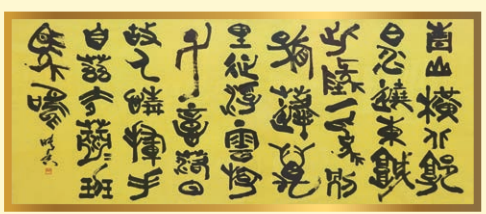 青山橫北郭
白水遶東城
此地一為別
孤蓬萬
里征浮雲游
子意落日
故人情揮手
自茲去蕭〻班
馬鳴